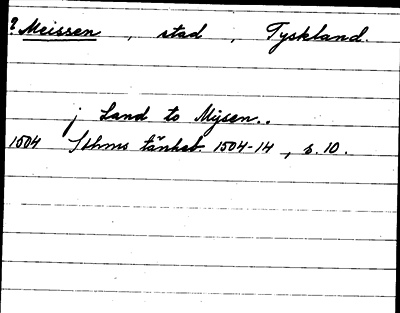 ? Meissen, stad, Tyskland.
j Land to Mijsen..
1504 Sthms tänkeb. 1504-14, s. 10.